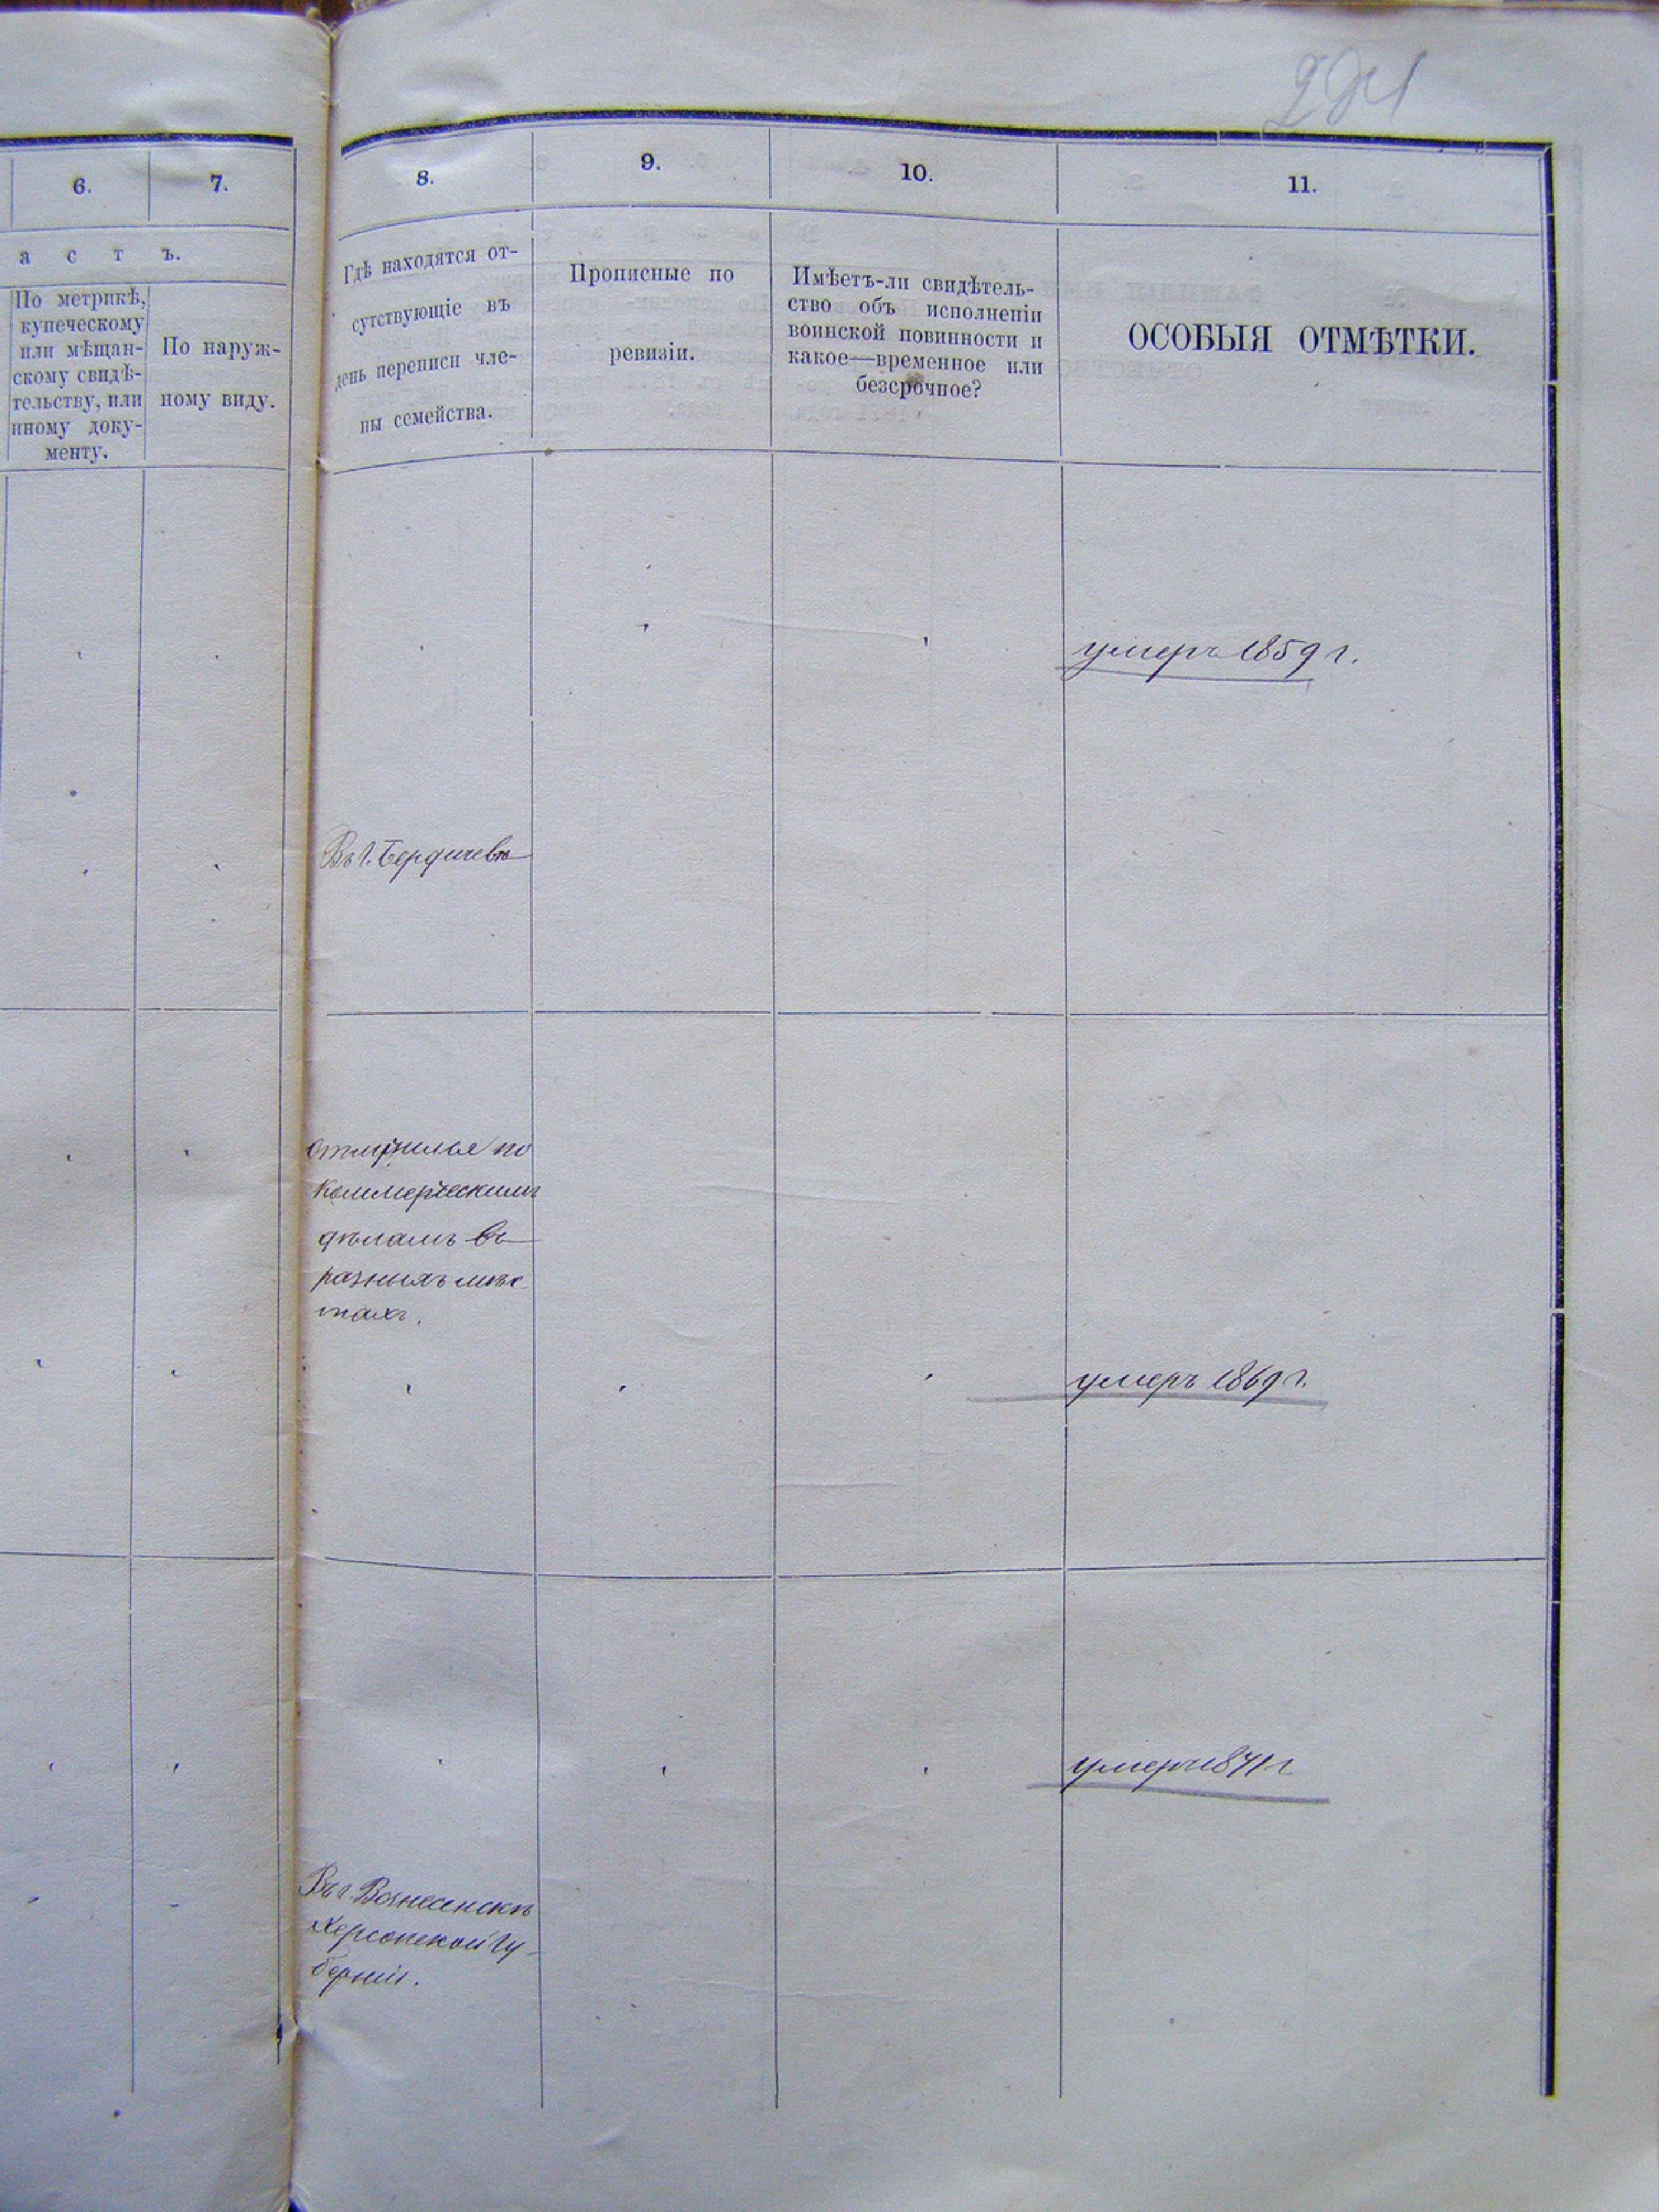 6.
7.
8.
9.
10.
11.
а с т ъ.
По метрикѣ,
купеческому
или мѣщан-
скому свидѣ-
тельству, или
иному доку-
менту.
По наруж-
ному виду.
Гдѣ находятся от-
сутствующіе въ
день переписи чле-
ны семейства.
Прописные по
ревизіи.
Имѣетъ-ли свидѣтель-
ство объ исполненіи
воинской повинности и
какое—временное или
безсрочное?
ОСОБЫЯ ОТМѢТКИ.
умеръ 1859 г.
Въ г. Бердичевѣ
по
Коммерческимъ
дѣламъ въ
разныхъ мѣс-
тахъ.
умеръ 1869 г.
умеръ 1871 г.
Въ г. Вознесенскѣ
Херсонской Гу-
берніи.